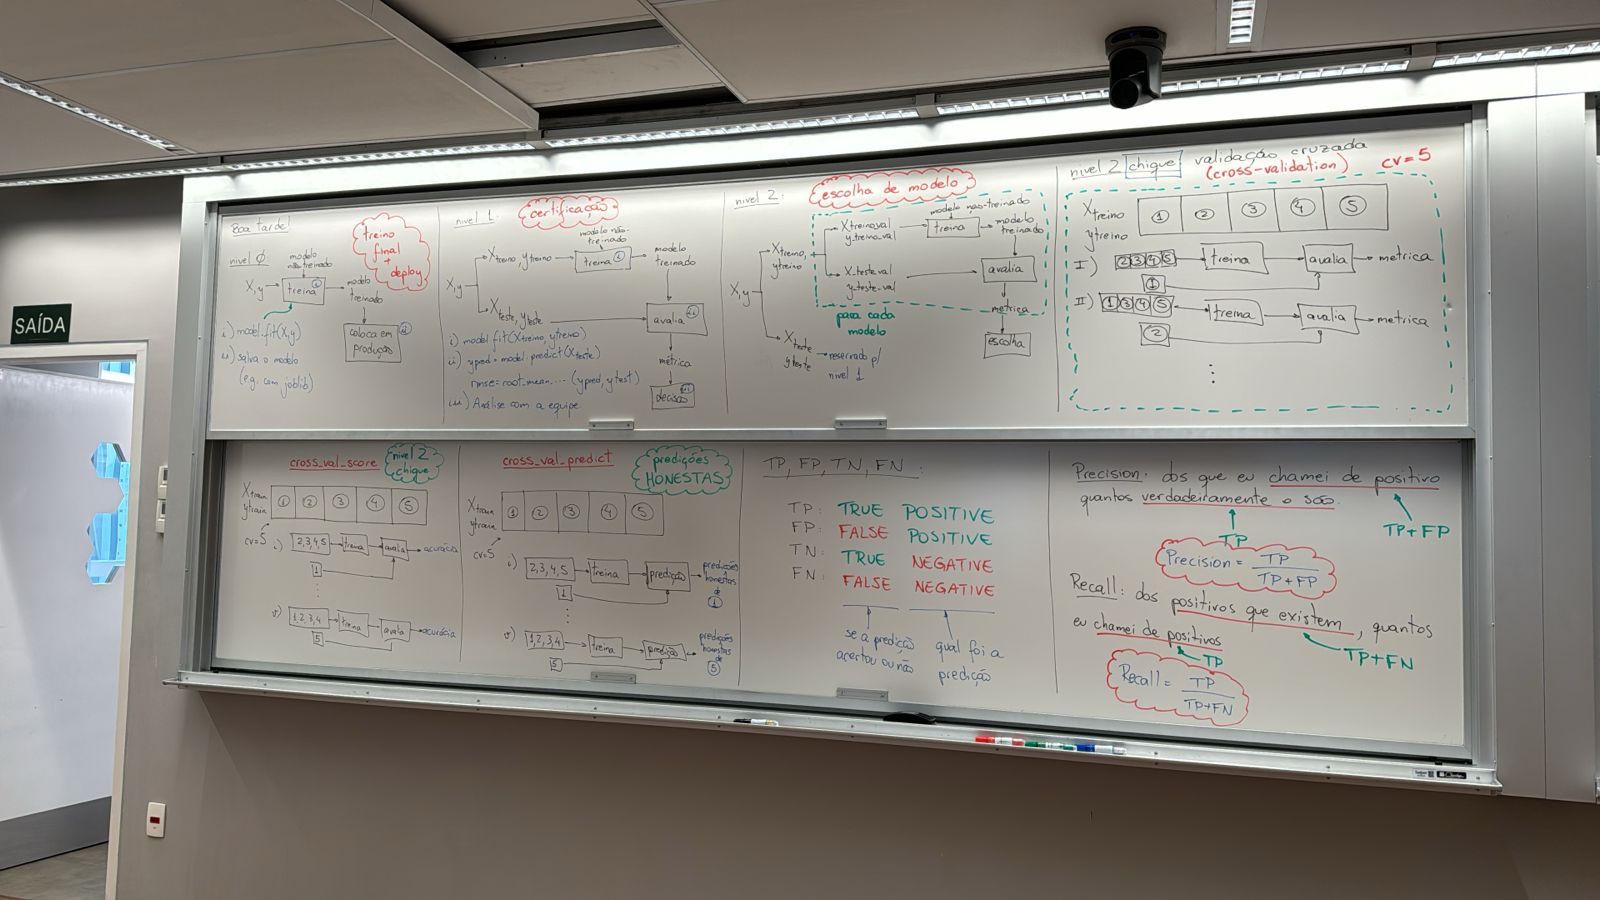 SAÍDA
Boa tarde!
treino
final
+
deploy
nivel 0
modelo
não-treinado
X,y
treina
i
modelo
treinado
coloca em
produção
ii
i) model.fit(X,y)
ii) salva o modelo
(e.g. com joblib)
nivel 1:
certificação
modelo não-
treinado
Xtreino, ytreino
treina
i
modelo
treinado
X,y
Xteste, yteste
avalia
ii
métrica
decisão
iii
i) model.fit(Xtreino, ytreino)
ii) ypred = model.predict(Xteste)
rmse = root_mean.... (ypred, ytest)
iii) Análise com a equipe
nivel 2:
escolha de modelo
modelo não-treinado
Xtreino,
ytreino
Xtreino_val
y_treino_val
treina
modelo
treinado
X_teste_val
y_teste_val
avalia
X,y
para cada
modelo
metrica
escolha
Xteste
yteste
reservado p/
nivel 1
nivel 2 chique validação cruzada
(cross-validation) cv=5
Xtreino
ytreino
1 2 3 4 5
I) 2 3 4 5 treina avalia metrica
1
II) 1 3 4 5 treina avalia metrica
2
⋮
cross_val_score
nivel 2
chique
Xtrain
ytrain
1 2 3 4 5
cv=5
i) 2,3,4,5 treina avalia acurácia
1
⋮
v) 1,2,3,4 treina avalia acurácia
5
cross_val_predict
predições
HONESTAS
Xtrain
ytrain
1 2 3 4 5
cv=5
i) 2,3,4,5 treina predição
predições
honestas
de
1
1
⋮
v) 1,2,3,4 treina predição
predições
honestas
de
5
5
TP, FP, TN, FN:
TP: TRUE POSITIVE
FP: FALSE POSITIVE
TN: TRUE NEGATIVE
FN: FALSE NEGATIVE
se a predição
acertou ou não
qual foi a
predição
Precision: dos que eu chamei de positivo
quantos verdadeiramente o são.
TP
TP+FP
Precision = TP
TP+FP
Recall: dos positivos que existem, quantos
eu chamei de positivos
TP
TP+FN
Recall = TP
TP+FN